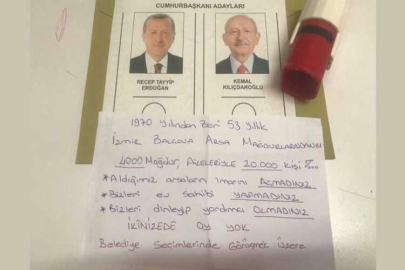 CUMHURBAŞKANI ADAYLARI
RECEP TAYYİP
ERDOĞAN
KEMAL
KILIÇDAROĞLU
1970 yılından Beri 53 yıllık
İzmir BALÇOVA Arsa MAĞDURLARINDANIM
4000 Mağdur, Aileleriyle 20.000 kişi
* Aldığımız arsaların imarını AÇMADINIZ
* Bizleri ev sahibi YAPMADINIZ
* Bizleri dinleyip yardımcı OLMADINIZ
İKİNİZEDE OY YOK
Belediye Seçimlerinde Görüşmek Üzere